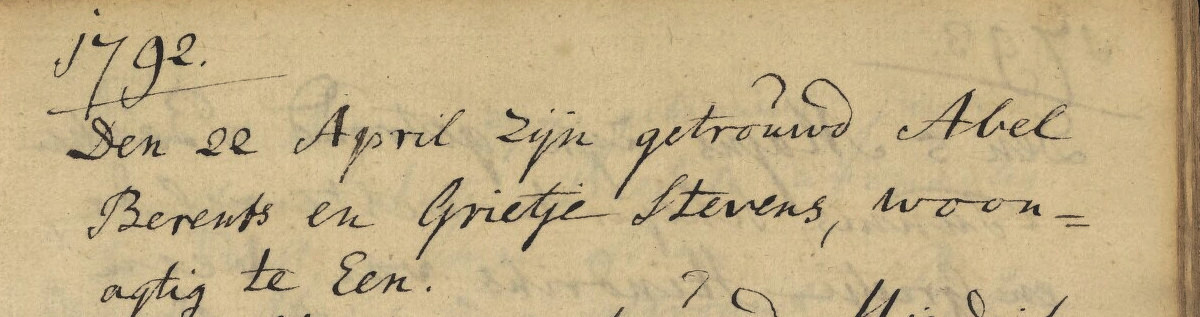 1792.
Den 22 April zijn getrouwd Abel
Berents en Grietje Stevens, woon=
agtig te Een.